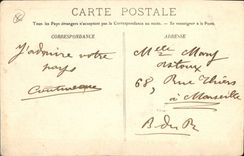 CARTE POSTALE
Tous les Pays étrangers n'acceptent pas la Correspondance au recto. Se renseigner à la Poste.
CORRESPONDANCE
ADRESSE
J'admire votre
pays
Melle Mary
68, Rue Thiers
à Marseille
B. du R.